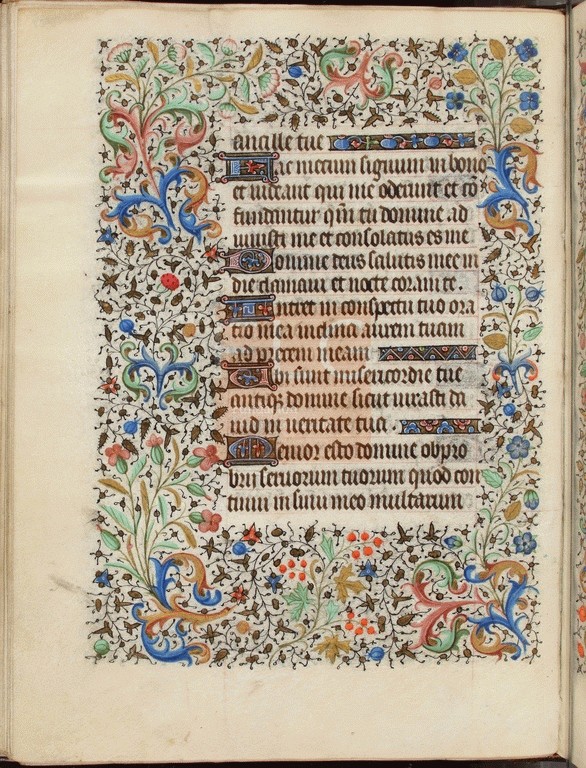 ancille tue
Fac mecum signum in bono
et uideant qui me oderunt et cō
fundantur qm̄ tu domine ad
iuuisti me et consolatus es me
Domine deus salutis mee in
die clamaui et nocte coram te.
Intret in conspectu tuo ora
tio mea inclina aurem tuam
ad precem meam
Ubi sunt misericordie tue
antiqꝫ domine sicut iurasti da
uid in ueritate tua
Memor esto domine obpro
brii seruorum tuorum quod con
tinui in sinu meo multarum